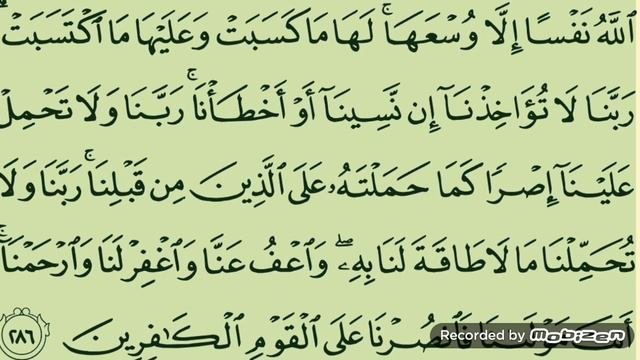 ٱللَّهُ نَفْسًا إِلَّا وُسْعَهَا ۚ لَهَا مَا كَسَبَتْ وَعَلَيْهَا مَا ٱكْتَسَبَتْ
رَبَّنَا لَا تُؤَاخِذْنَآ إِن نَّسِينَآ أَوْ أَخْطَأْنَا ۚ رَبَّنَا وَلَا تَحْمِلْ
عَلَيْنَآ إِصْرًا كَمَا حَمَلْتَهُۥ عَلَى ٱلَّذِينَ مِن قَبْلِنَا ۚ رَبَّنَا وَلَا
تُحَمِّلْنَا مَا لَا طَاقَةَ لَنَا بِهِۦ ۖ وَٱعْفُ عَنَّا وَٱغْفِرْ لَنَا وَٱرْحَمْنَآ ۚ
أَنتَ مَوْلَىٰنَا فَٱنصُرْنَا عَلَى ٱلْقَوْمِ ٱلْكَٰفِرِينَ ٢٨٦
Recorded by Mobizen